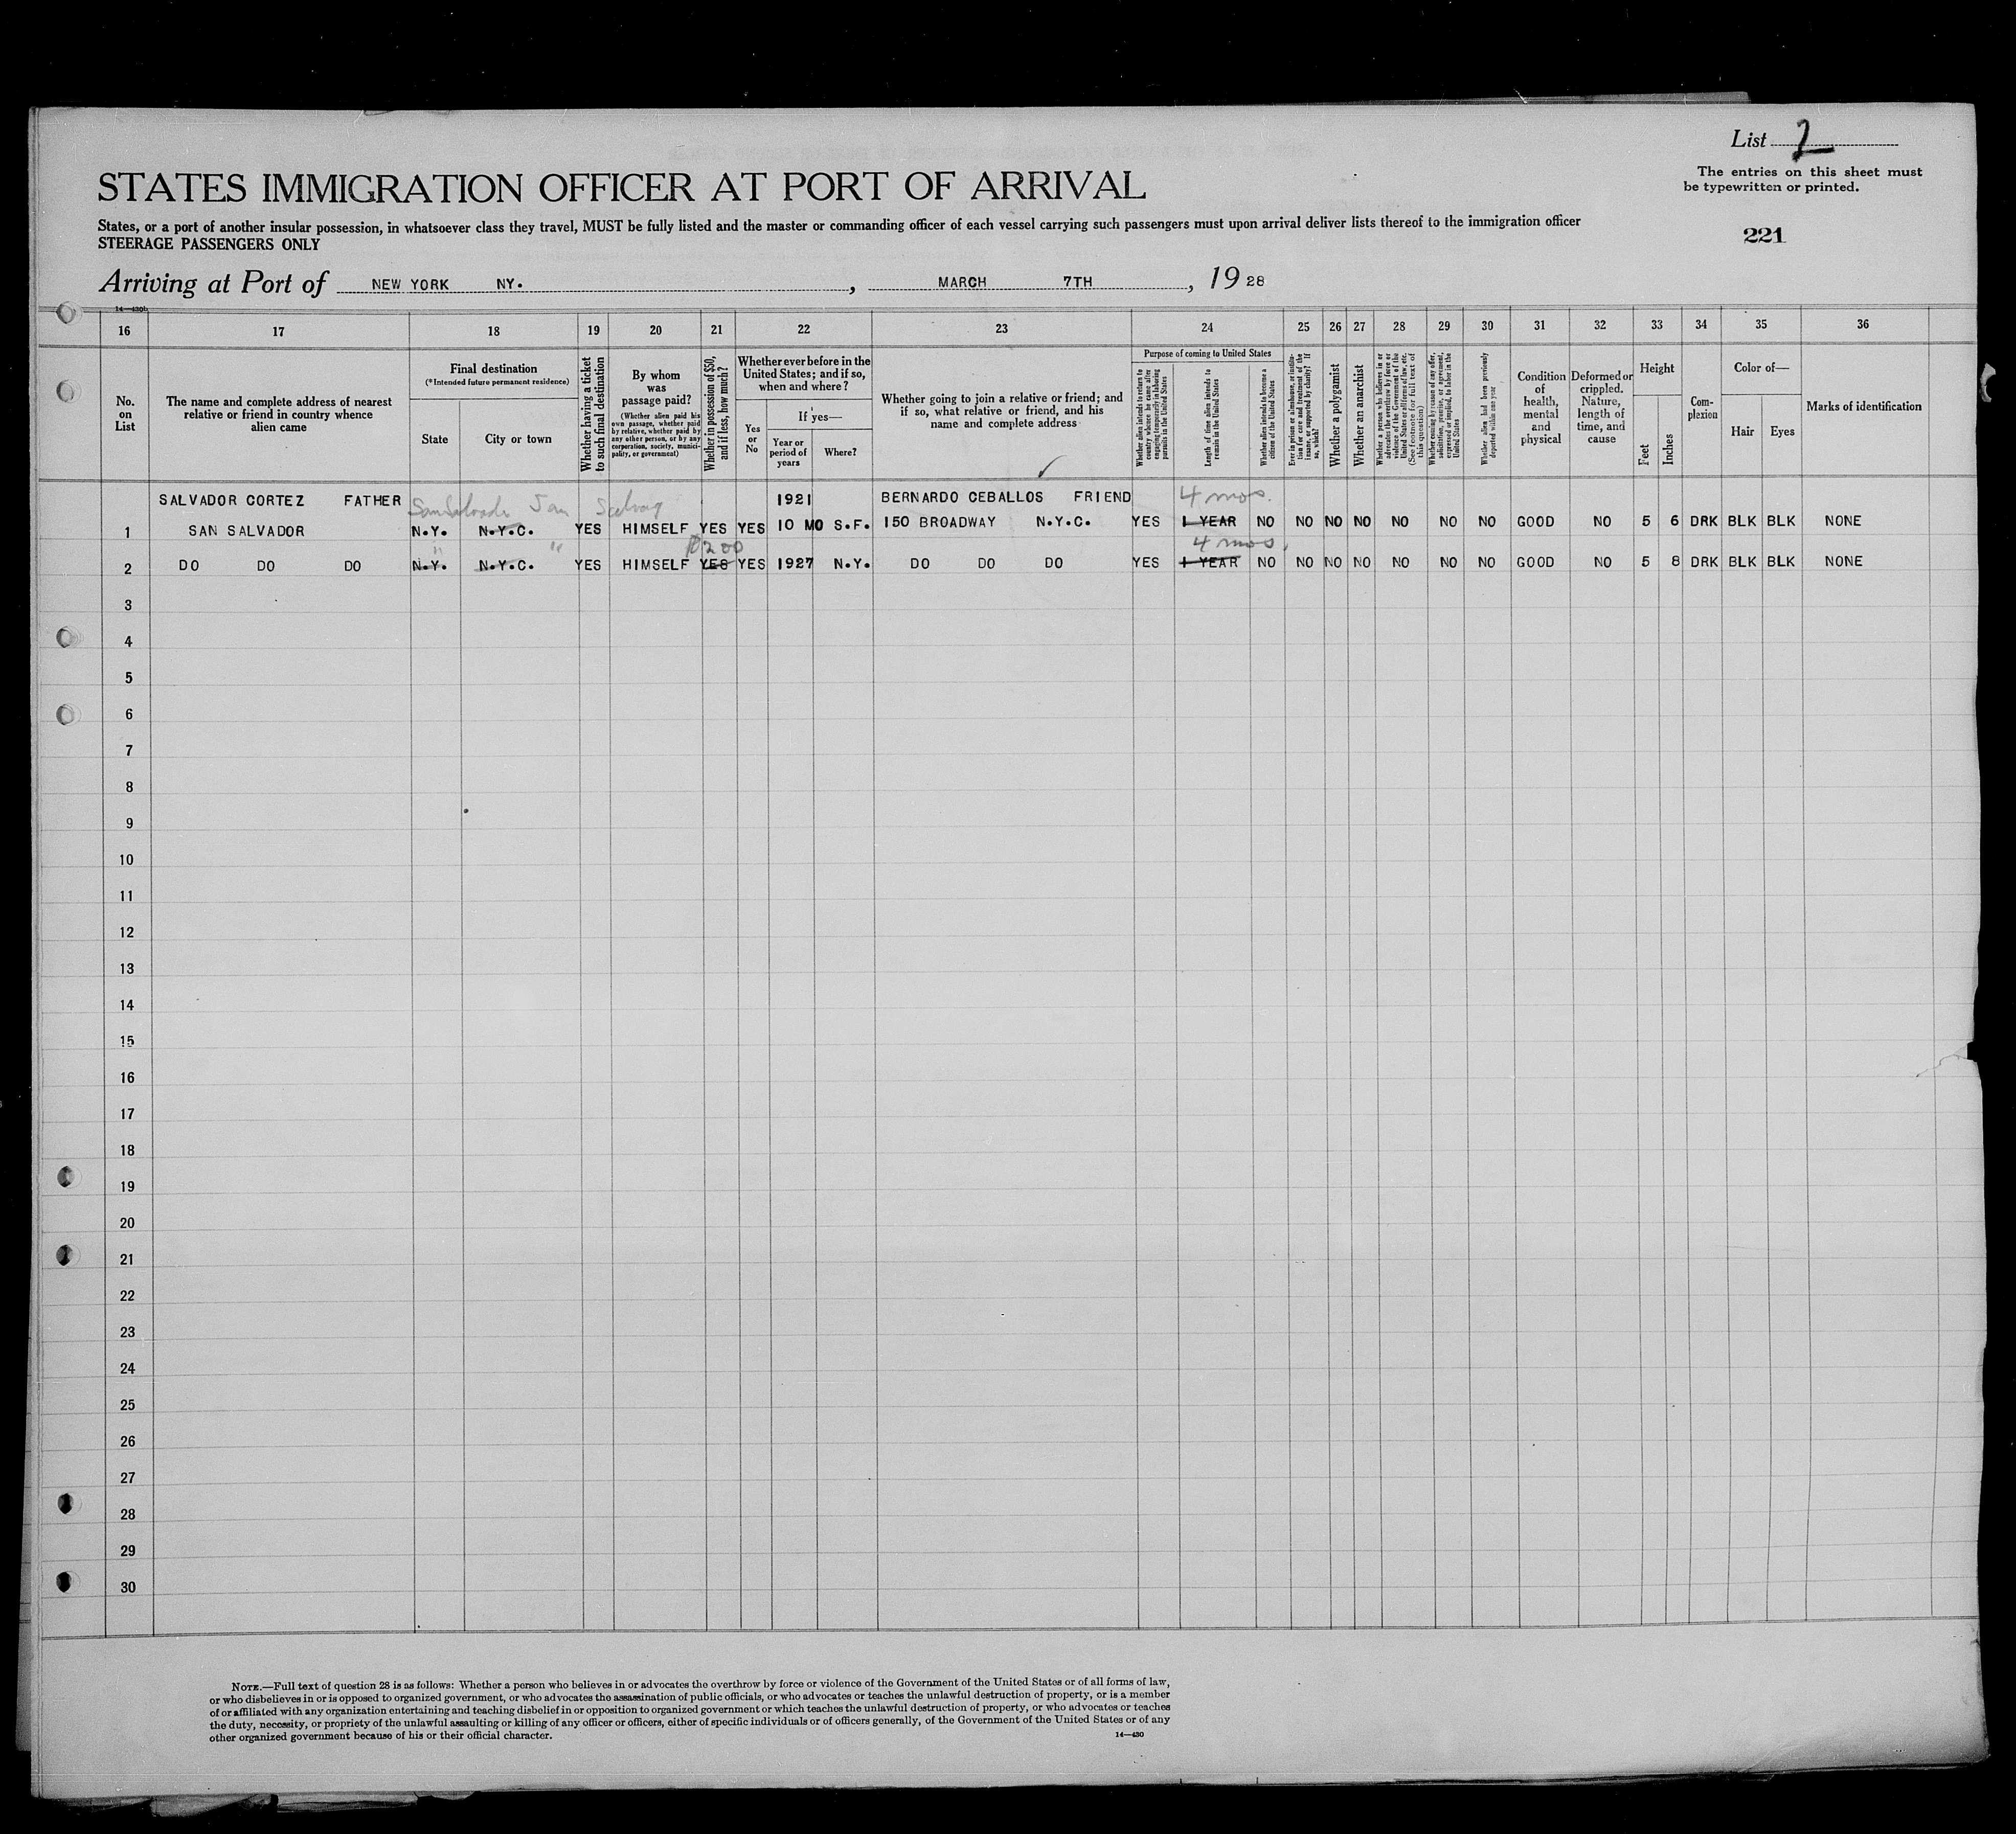 List 2
The entries on this sheet must
be typewritten or printed.
STATES IMMIGRATION OFFICER AT PORT OF ARRIVAL
States, or a port of another insular possession, in whatsoever class they travel, MUST be fully listed and the master or commanding officer of each vessel carrying such passengers must upon arrival deliver lists thereof to the immigration officer
STEERAGE PASSENGERS ONLY
221
Arriving at Port of NEW YORK NY. , MARCH 7TH , 19 28
14—430b
16 17 18 19 20 21 22 23 24 25 26 27 28 29 30 31 32 33 34 35 36
No.
on
List
The name and complete address of nearest
relative or friend in country whence
alien came
Final destination
(*Intended future permanent residence)
State
City or town
Whether having a ticket
to such final destination
By whom
was
passage paid?
(Whether alien paid his
own passage, whether paid
by relative, whether paid by
any other person, or by any
corporation, society, munici-
pality, or government)
Whether in possession of $50,
and if less, how much?
Whether ever before in the
United States; and if so,
when and where?
Yes
or
No
If yes—
Year or
period of
years
Where?
Whether going to join a relative or friend; and
if so, what relative or friend, and his
name and complete address
Purpose of coming to United States
Whether alien intends to return to
country whence he came after
engaging temporarily in laboring
pursuits in the United States
Length of time alien intends to
remain in the United States
Whether alien intends to become a
citizen of the United States
Ever in prison or almshouse, or institu-
tion for care and treatment of the
insane, or supported by charity? If
so, which?
Whether a polygamist
Whether an anarchist
Whether a person who believes in or
advocates the overthrow by force or
violence of the Government of the
United States or all forms of law, etc.
(See footnote for full text of
this question)
Whether coming by reason of any offer,
solicitation, promise, or agreement,
expressed or implied, to labor in the
United States
Whether alien had been previously
deported within one year
Condition
of
health,
mental
and
physical
Deformed or
crippled.
Nature,
length of
time, and
cause
Height
Feet
Inches
Com-
plexion
Color of—
Hair
Eyes
Marks of identification
SALVADOR CORTEZ FATHER San Salvador San Salvador 1921 BERNARDO CEBALLOS FRIEND 4 mos.
1 SAN SALVADOR N.Y. N.Y.C. YES HIMSELF YES YES 10 MO S.F. 150 BROADWAY N.Y.C. YES 1 YEAR NO NO NO NO NO NO NO GOOD NO 5 6 DRK BLK BLK NONE
" " $200 4 mos.
2 DO DO DO N.Y. N.Y.C. YES HIMSELF YES YES 1927 N.Y. DO DO DO YES 1 YEAR NO NO NO NO NO NO NO GOOD NO 5 8 DRK BLK BLK NONE
3
4
5
6
7
8
9
10
11
12
13
14
15
16
17
18
19
20
21
22
23
24
25
26
27
28
29
30
NOTE.—Full text of question 28 is as follows: Whether a person who believes in or advocates the overthrow by force or violence of the Government of the United States or of all forms of law,
or who disbelieves in or is opposed to organized government, or who advocates the assassination of public officials, or who advocates or teaches the unlawful destruction of property, or is a member
of or affiliated with any organization entertaining and teaching disbelief in or opposition to organized government or which teaches the unlawful destruction of property, or who advocates or teaches
the duty, necessity, or propriety of the unlawful assaulting or killing of any officer or officers, either of specific individuals or of officers generally, of the Government of the United States or of any
other organized government because of his or their official character.
14—430